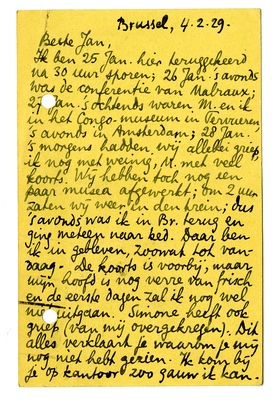 Brussel, 4.2.29.
Beste Jan,
Ik ben 25 Jan. hier teruggekeerd
na 30 uur sporen; 26 Jan. 's avonds
was de conferentie van Malraux;
27 Jan. 's ochtends waren M. en ik
in het Congo-museum in Tervueren,
's avonds in Amsterdam; 28 Jan.
's morgens hadden wij allebei griep,
ik nog met weinig, M. met veel
koorts. Wij hebben toch nog een
paar musea afgewerkt; om 2 uur
zaten wij weer in den trein; dus
's avonds was ik in Br. terug en
ging meteen naar bed. Daar ben
ik in gebleven, zoowat tot van-
daag. - De koorts is voorbij, maar
mijn hoofd is nog verre van frisch
en de eerste dagen zal ik nog wel
niet uitgaan. Simone heeft ook
griep (van mij overgekregen). Dit
alles verklaart je waarom je mij
nog niet hebt gezien. Ik kom bij
je op kantoor zoo gauw ik kan.